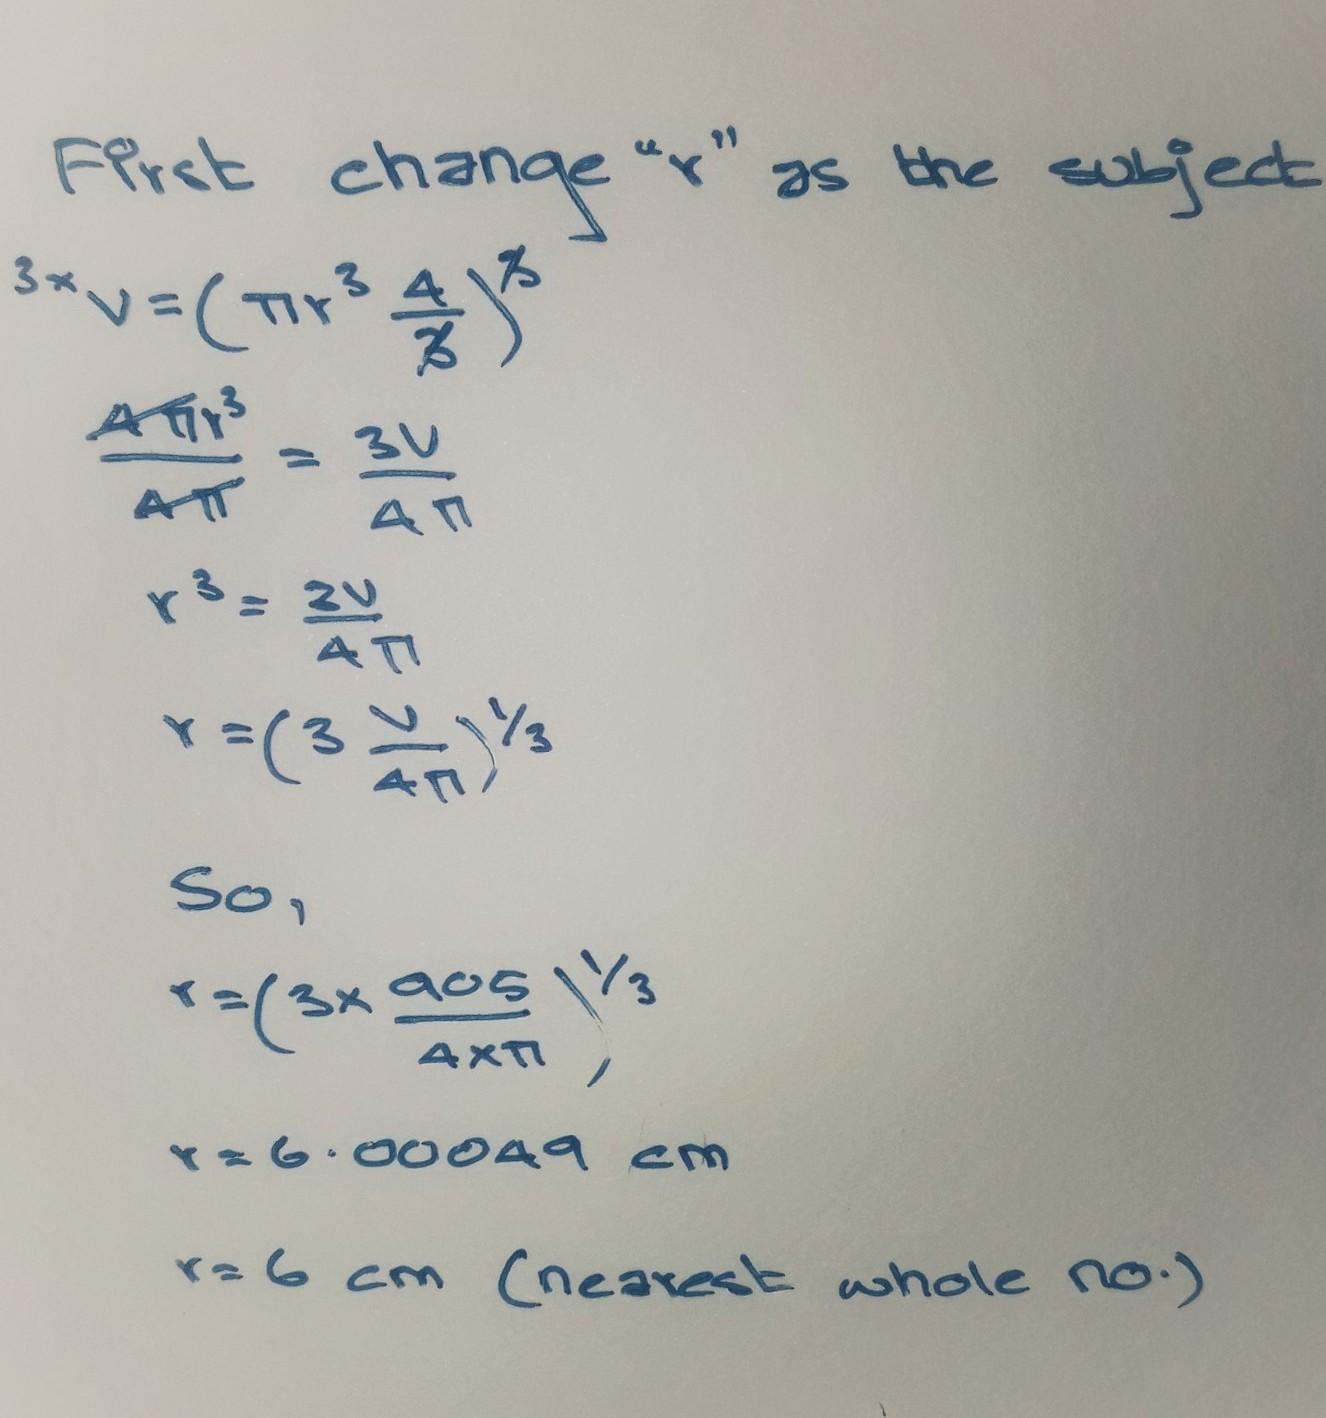 First change "r" as the subject
3× V = (πr³ 4/3)³
4πr³/4π = 3V/4π
r³ = 2V/4π
r = (3 V/4π)^1/3
So,
r = (3× 905/4×π)^1/3
r = 6.00049 cm
r = 6 cm (nearest whole no.)